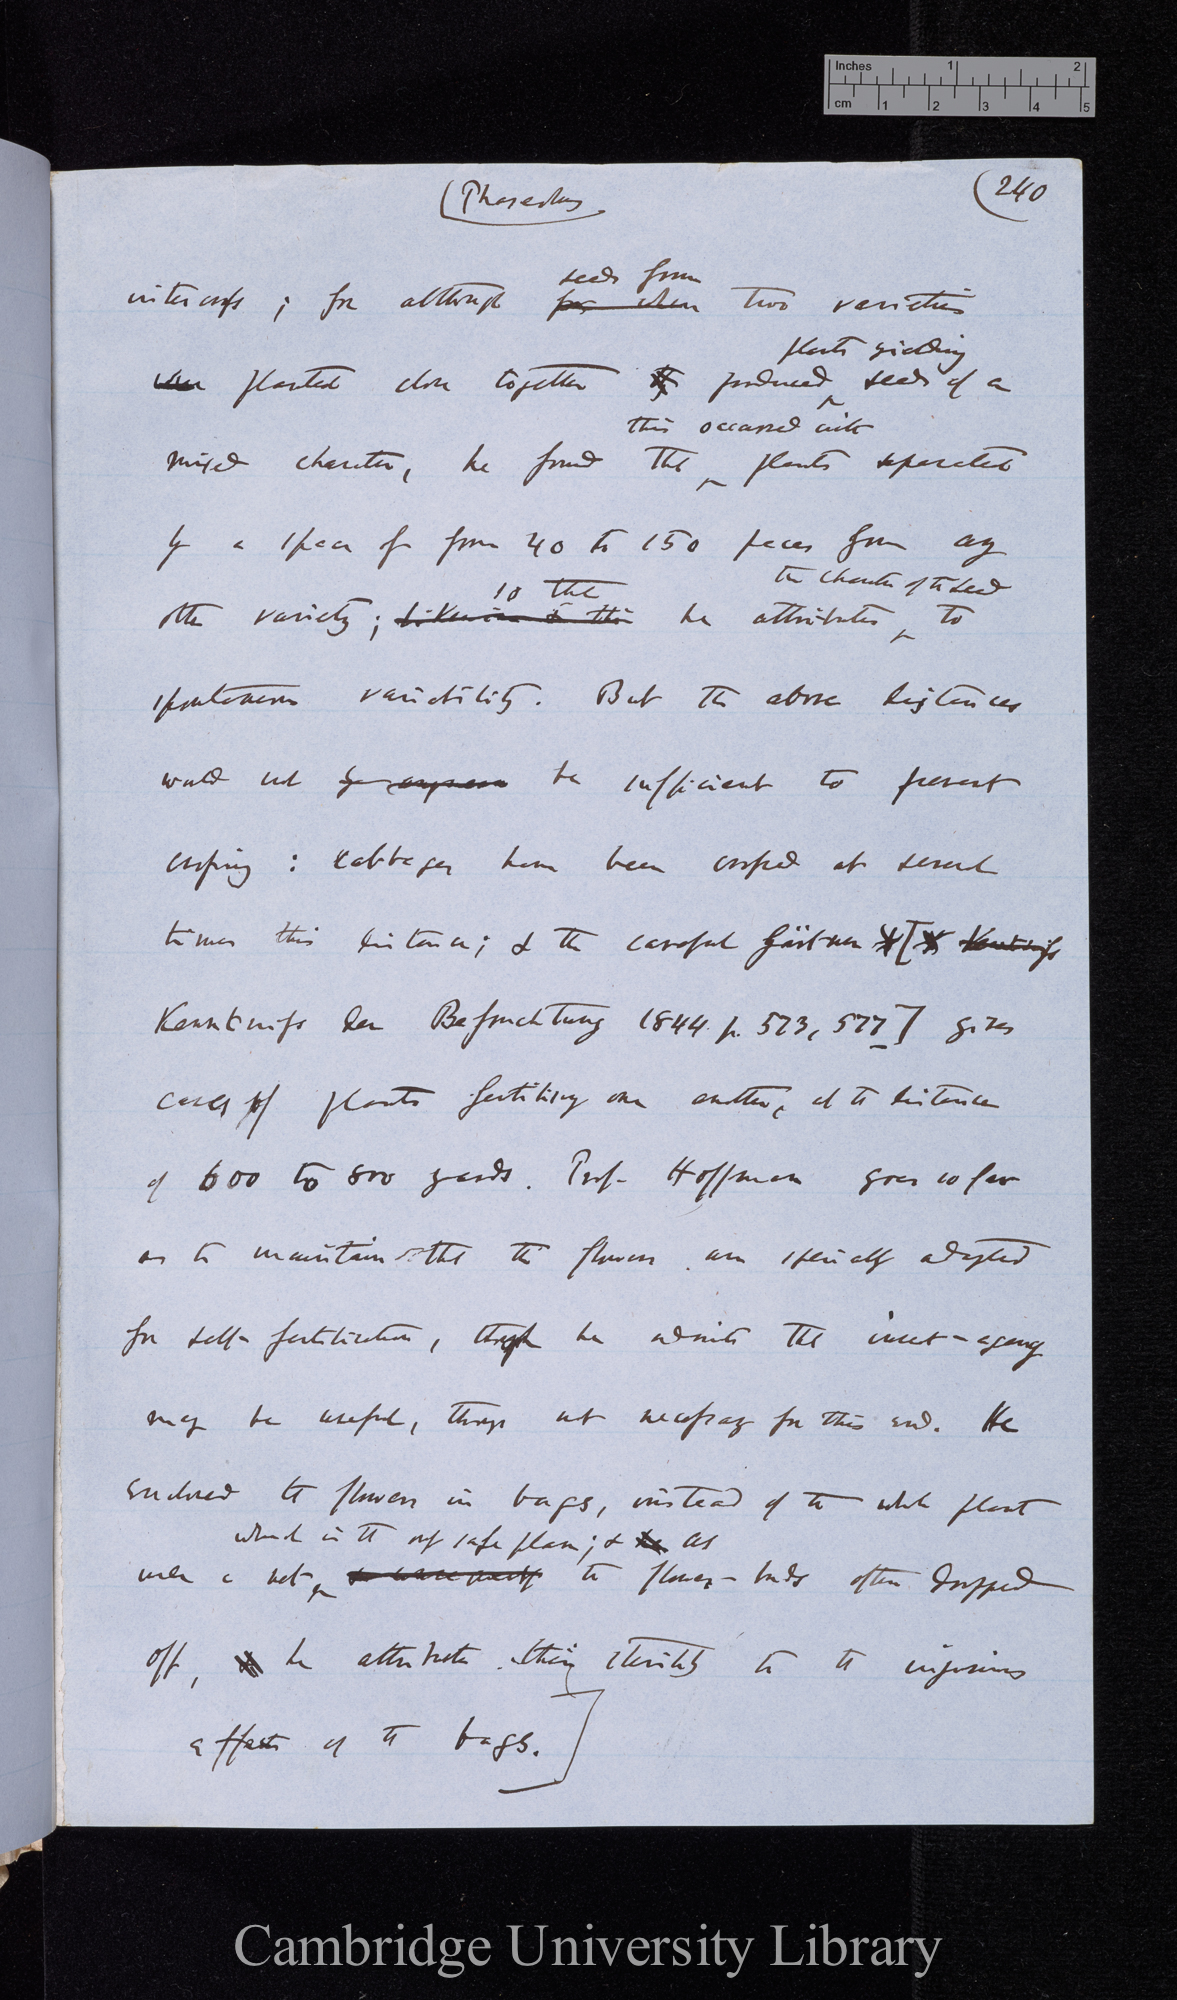 Inches 1 2
cm 1 2 3 4 5
(Phaseolus
(240
intercross; for although seeds from for when two varieties
were planted close together produced plants yielding seeds of a
mixed character, he found that this occurred with plants separated
by a space of from 40 to 150 paces from any
other variety; likewise to this so that he attributes the character of the seed to
spontaneous variability. But the above distances
would not be sufficient to prevent
crossing: cabbages have been crossed at several
times this distance; & the careful Gärtner [Kenntniss
Kenntniss der Befruchtung 1844. p. 573, 577] gives
cases of plants fertilising one another, at the distance
of 600 to 800 yards. Prof. Hoffman goes so far
as to maintain that the flowers are specially adapted
for self-fertilisation, though he admits that insect-agency
may be useful, though not necessary for this end. He
enclosed the flowers in bags, instead of the whole plant
under a net, which is the only safe plan; & as the flower-buds often dropped
off, he attributes their sterility to the injurious
effects of the bags.]
Cambridge University Library